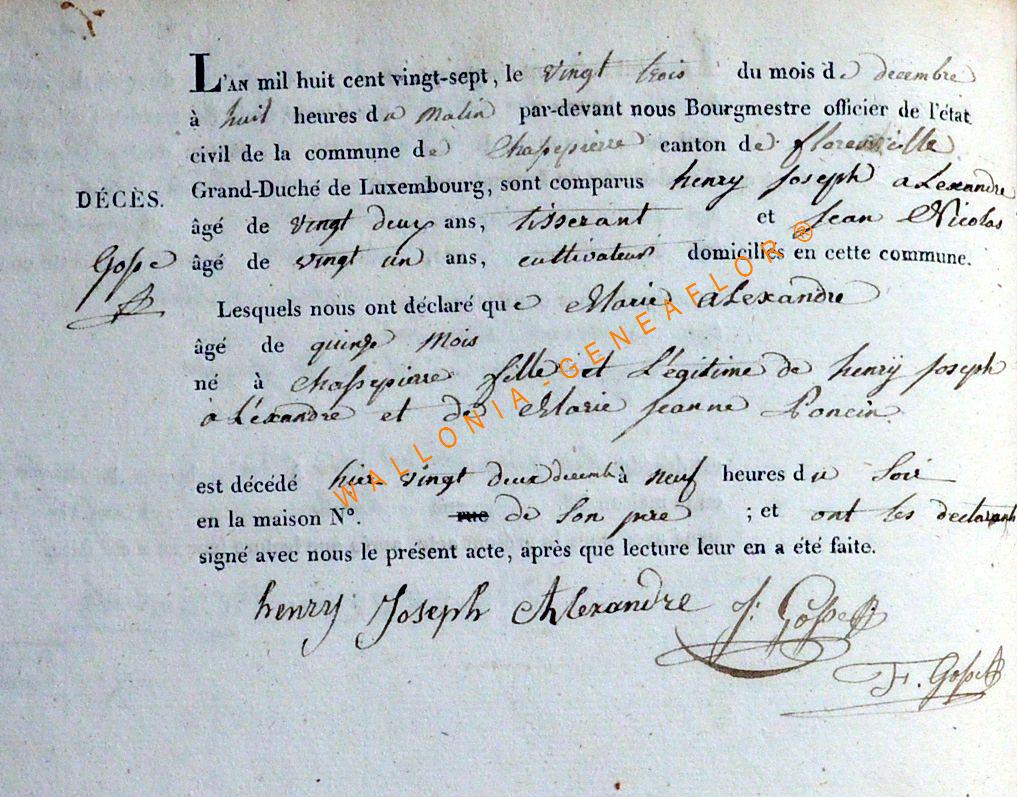 L'AN mil huit cent vingt-sept, le vingt trois du mois de decembre
à huit heures du matin par-devant nous Bourgmestre officier de l'état
civil de la commune de Chassepierre canton de florenville
DÉCÈS. Grand-Duché de Luxembourg, sont comparus henry Joseph alexandre
âgé de vingt deux ans, tisserant et Jean Nicolas
Gosse âgé de vingt un ans, cultivateur domiciliés en cette commune.
Lesquels nous ont déclaré que Marie alexandre
âgé de quinze mois
né à Chassepierre fille et Légitime de henry joseph
aléxandre et de Marie jeanne Poncin
est décédé hier vingt deux decembre à neuf heures du Soir
en la maison N°. rue de son pere ; et ont les declarants
signé avec nous le présent acte, après que lecture leur en a été faite.
henry Joseph Alexandre J: Gosse
F. Gosse
WALLONIA-GENEAFLOR ®